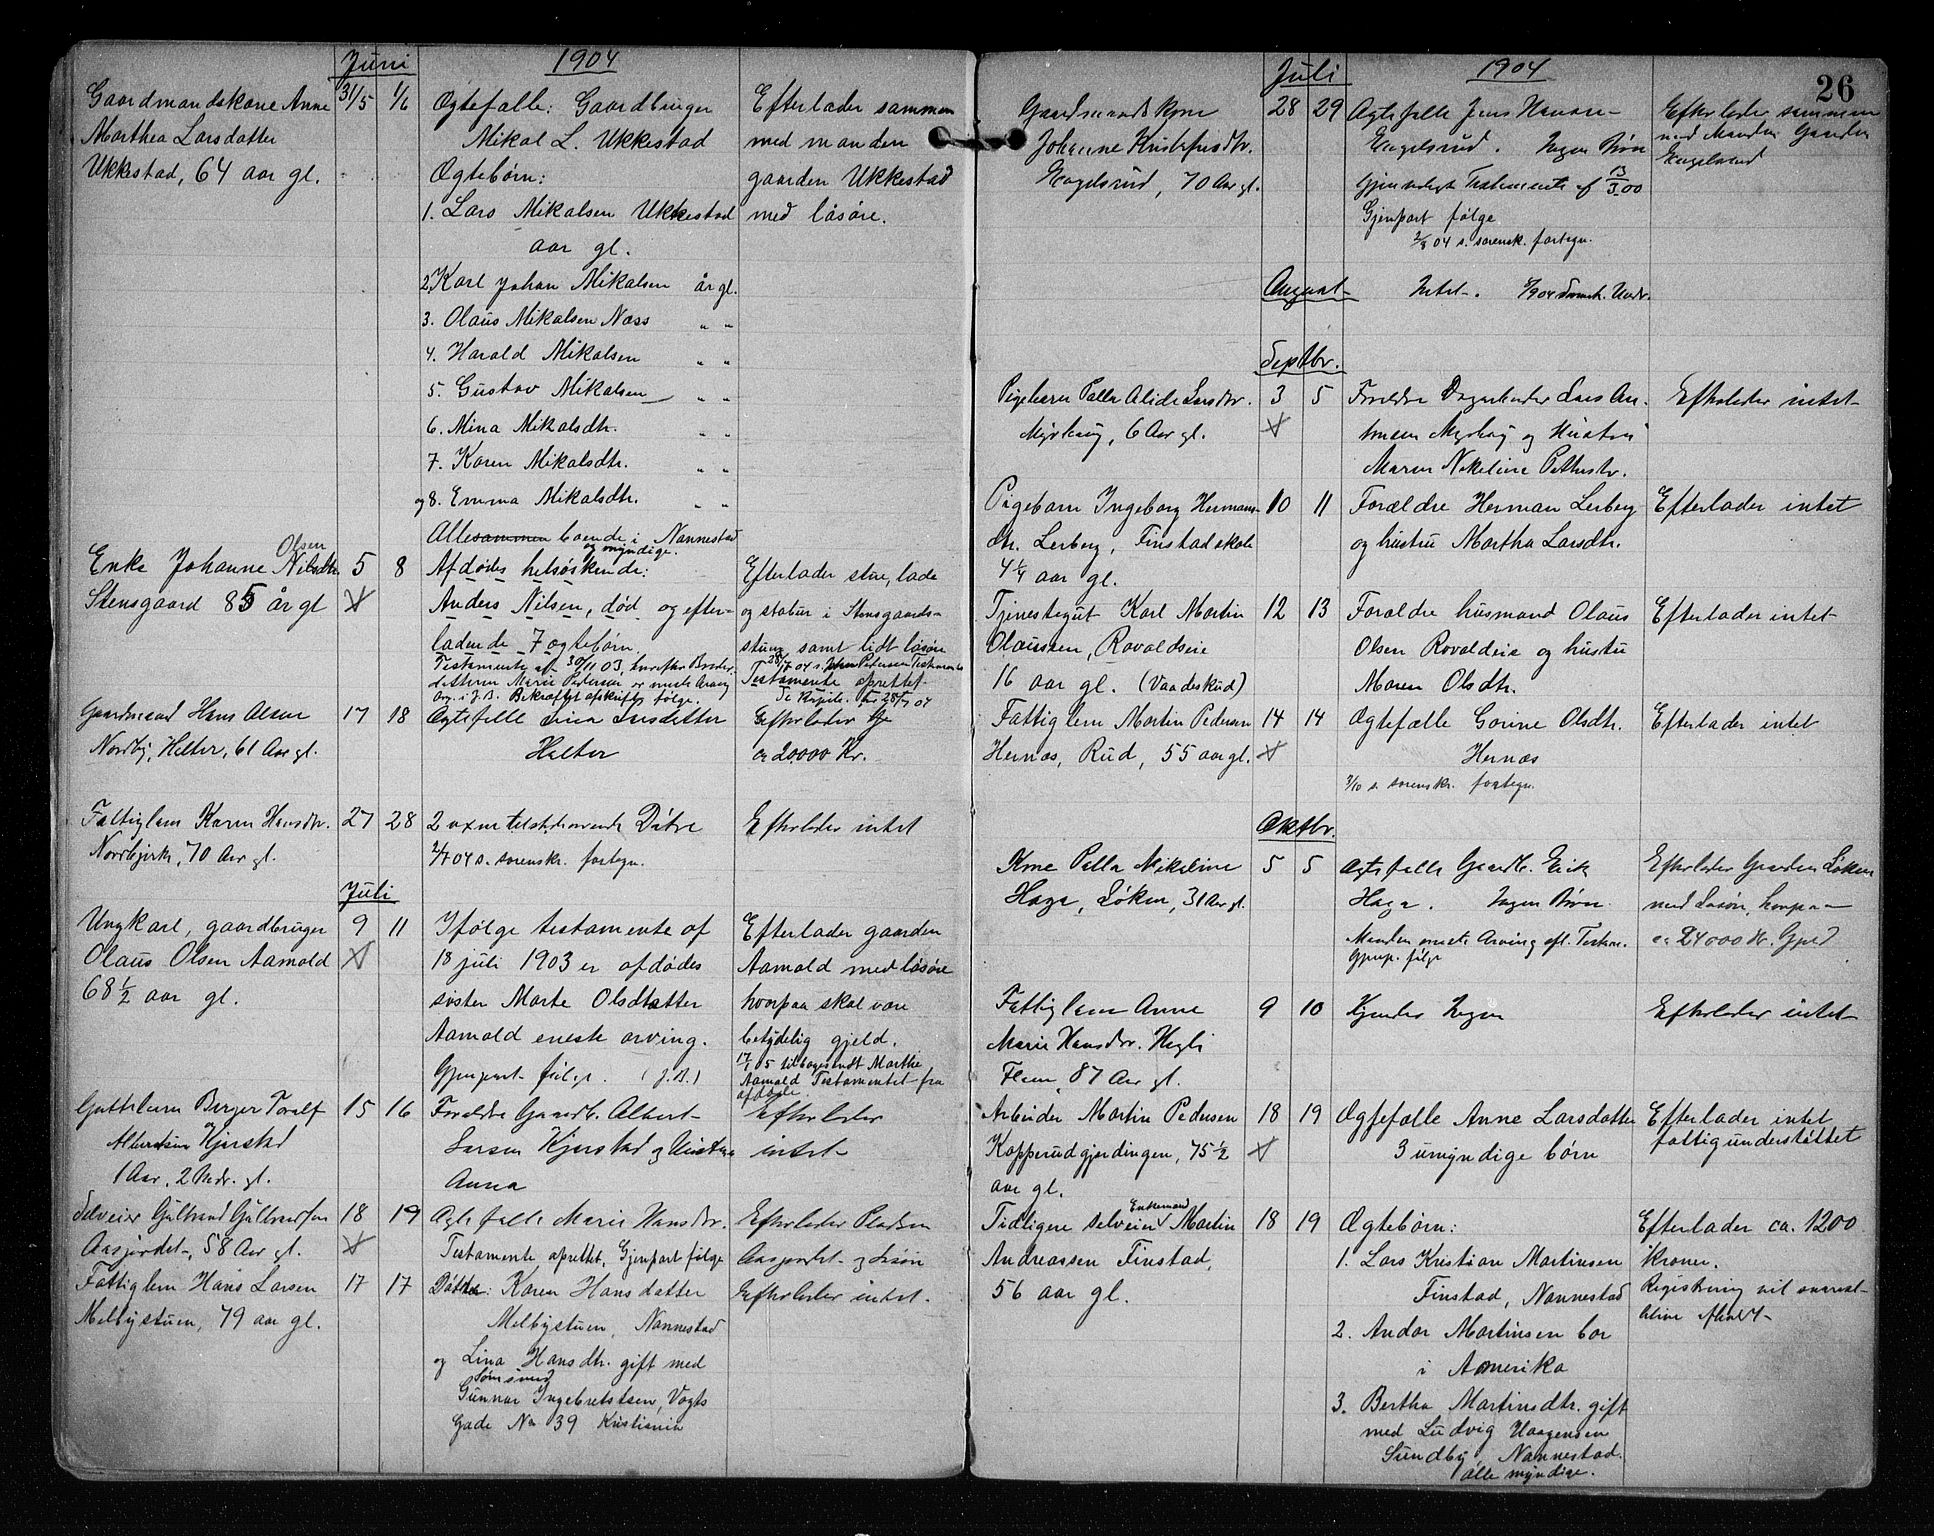 Juni 1904
Gaardmandskone Anne
Marthea Larsdatter
Ukkestad, 64 aar gl.
31/5 1/6
Ægtefælle: Gaardbruger
Mikal L. Ukkestad
Ægtebørn:
1. Lars Mikalsen Ukkestad
aar gl.
2. Karl Johan Mikalsen år gl.
3. Olaus Mikalsen Næss " "
4. Harald Mikalsen " "
5. Gustav Mikalsen " "
6. Mina Mikalsdtr. " "
7. Karen Mikalsdtr. " "
og 8. Emma Mikalsdtr. " "
Allesammen boende i Nannestad
og myndige.
Efterlader sammen
med manden
gaarden Ukkestad
med løsøre.
Enke Johanne Nilsdtr. Olsen
Stensgaard 85 år gl
5 8
Afdødes helsøskende:
Anders Nilsen, død og efter-
ladende 7 ægtebørn.
Testamente af 30/11 03, hvorefter Broder
datteren Marie Pedersen er eneste Arving
Bekræftet afskrift følge.
Efterlader stue, lade
og stabur i Stensgaards-
stuen samt lidt løsøre
Testamente oprettet
Gaardmand Hans Olsen
Nordby, Helter, 61 Aar gl.
17 18
Ægtefælle Lina Larsdatter
Helter
Efterlader Eje
ca 20000 Kr.
Fattiglem Karen Hansdtr.
Nordbjerke, 70 Aar gl.
27 28
2 voxne tilstedeværende Døtre
2/7 04 s. sorenskr. fortegn.
Efterlader intet
Juli
Ungkarl, gaardbruger
Olaus Olsen Aamold
68 1/2 aar gl.
9 11
Ifølge testamente af
18 juli 1903 er afdødes
søster Marte Olsdatter
Aamold eneste arving.
Gjenpart følge. (J.B.)
Efterlader gaarden
Aamold med løsøre
hvorpaa skal være
betydelig gjeld.
17/1 05 tilbagesendt Marthe
Aamold Testamentet fra
afdøde
Guttebarn Berger Toralf
Albertsen Kjerstad
1 Aar, 2 Mdr. gl.
15 16
Forældre Gaardb. Albert
Larsen Kjerstad og Hustru
Anna
Efterlader
intet
Selveier Gulbrand Gulbrandsen
Aasjordet, 58 Aar gl.
18 19
Ægtefælle Marie Hansdtr.
Testamente oprettet, Gjenpart følge
Efterlader Pladsen
Aasjordet og Løsøre
Fattiglem Hans Larsen
Melbystuen, 79 aar gl.
17 17
Døttre: Karen Hansdatter
Melbystuen, Nannestad
og Lina Hansdtr. gift med
Sømsmed
Gunnar Ingebretsen, Vogts
Gade No 39 Kristiania
Efterlader intet.
26
Juli 1904
Gaardmandskone
Johanne Kristofersdtr.
Engelsrud, 70 Aar gl.
28 29
Ægtefælle Jens Hansen
Engelsrud. Ingen Børn
Gjensidigt Testamente af 13/3.00
Gjenpart følge
2/8 04 s. sorenskr. fortegn.
Efterlader sammen
med Manden Gaarden
Engelsrud
August Intet.
Septbr.
Pigebarn Palla Alide Larsdtr.
Myrhaug, 6 Aar gl.
3 5
Forældre Dagarbeider Lars An-
tonsen Myrhaug og Hustru
Maren Nikoline Pettersdtr.
Efterlader intet
Pigebarn Ingeborg Hermans-
dtr. Lerberg, Finstad skole
4 1/4 aar gl.
10 11
Forældre Herman Lerberg
og hustru Martha Larsdtr.
Efterlader intet
Tjenestegut Karl Martin
Olaussen, Rovoldseie
16 aar gl. (Vaadeskud)
12 13
Forældre husmand Olaus
Olsen Rovoldeie og hustru
Maren Olsdtr.
Efterlader intet
Fattiglem Martin Pedersen
Hernæs, Rud, 55 aar gl.
14 14
Ægtefælle Gorine Olsdtr.
Hernæs
3/10 s. sorenskr. fortegn.
Efterlader intet
Oktbr.
Kone Palla Mikeline
Haga, Løken, 31 Aar gl.
5 5
Ægtefælle Gaardb. Erik
Haga. Ingen Børn.
Manden eneste Arving efl. Testam.
Gjenp. følge
Efterlader Gaarden Løken
med Løsøre, hvorpaa
ca 24000 Kr. Gjæld
Fattiglem Anne
Marie Hansdtr. Hegli
Flem, 87 Aar gl.
9 10
Kjendes Ingen
Efterlader intet
Arbeider Martin Pedersen
Kopperudgjerdingen, 75 1/2
aar gl.
18 19
Ægtefælle Anne Larsdatter
3 umyndige børn
Efterlader intet
fattigunderstøttet
Tidligere selveier Enkemand Martin
Andreassen Finstad,
56 aar gl.
18 19
Ægtebørn:
1. Lars Kristian Martinsen
Finstad, Nannestad
2. Andor Martinsen bor
i Amerika
3. Bertha Martinsdtr. gift
med Ludvig Haagensen
Sundby, Nannestad.
alle myndige.
Efterlader ca. 1200
kroner.
Registrering vil snarest
blive afholdt